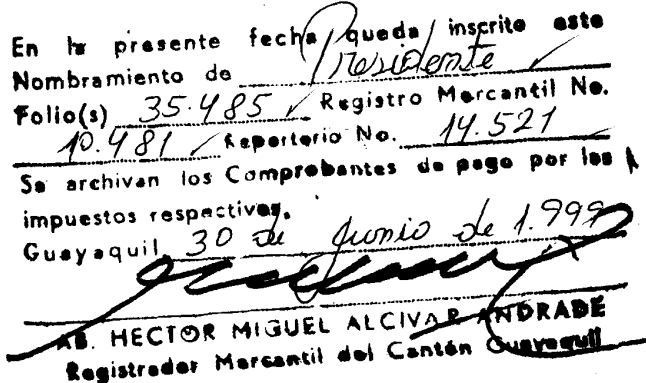 En la presente fecha queda inscrito este
Nombramiento de Presidente
Folio(s) 35.485 Registro Mercantil No.
10.481 Repertorio No. 14.521
Se archivan los Comprobantes de pago por los
impuestos respectivos.
Guayaquil, 30 de Junio de 1.999
AB. HECTOR MIGUEL ALCIVAR ANDRADE
Registrador Mercantil del Cantón Guayaquil